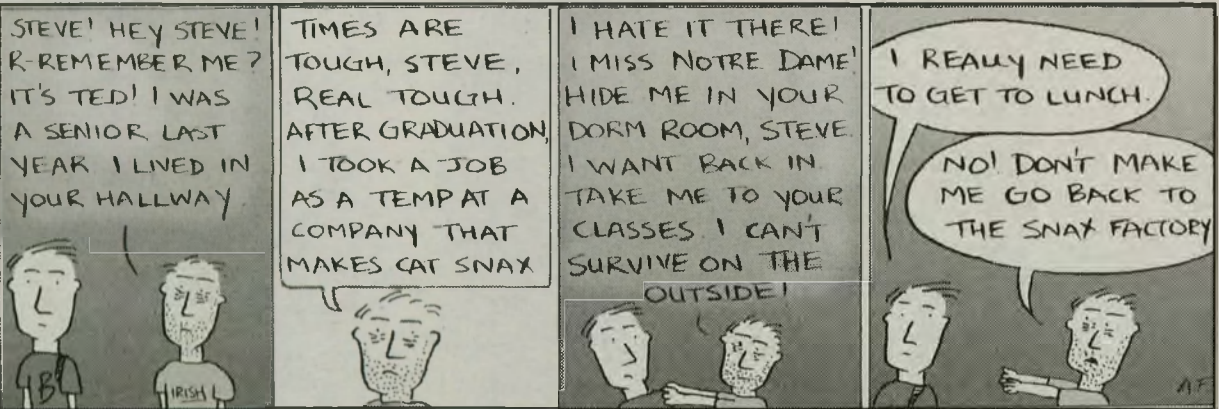 STEVE! HEY STEVE!
R-REMEMBER ME?
IT'S TED! I WAS
A SENIOR LAST
YEAR I LIVED IN
YOUR HALLWAY.
B
IRISH
TIMES ARE
TOUGH, STEVE,
REAL TOUGH.
AFTER GRADUATION,
I TOOK A JOB
AS A TEMP AT A
COMPANY THAT
MAKES CAT SNAX
I HATE IT THERE!
I MISS NOTRE DAME!
HIDE ME IN YOUR
DORM ROOM, STEVE.
I WANT BACK IN.
TAKE ME TO YOUR
CLASSES. I CAN'T
SURVIVE ON THE
OUTSIDE!
I REALLY NEED
TO GET TO LUNCH.
NO! DON'T MAKE
ME GO BACK TO
THE SNAX FACTORY
AF